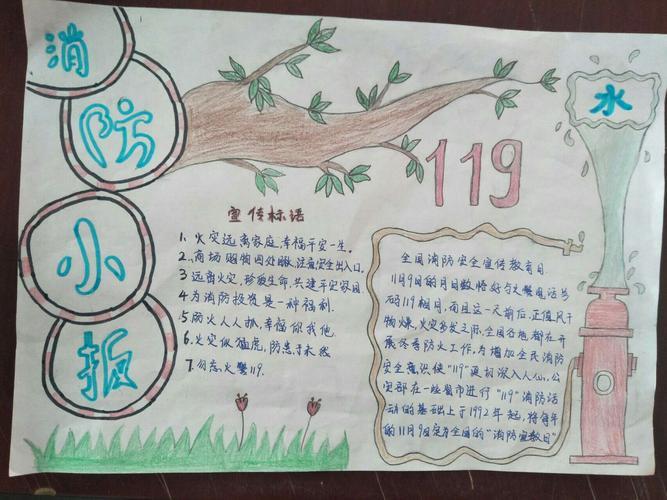 消防小报
119
水
宣传标语
1、火灾远离家庭,幸福平安一生。
2、商场购物四处瞅,注意安全出入口.
3、远离火灾,珍爱生命,共建平安家园
4、为消防投资是一种福利.
5、防火人人抓,幸福你我他.
6、火灾似猛虎,防患于未然
7、勿忘火警119.
全国消防安全宣传教育日
11月9日的月日数恰好与火警电话号
码119相同,而且这一天前后,正值风干
物燥,火灾多发之际,全国各地都在开
展冬季防火工作,为增加全民消防
安全意识,使"119"更加深入人心,公
安部在一些省市进行"119"消防活
动的基础上于1992年起,将每年
的11月9日定为全国的"消防宣教日"